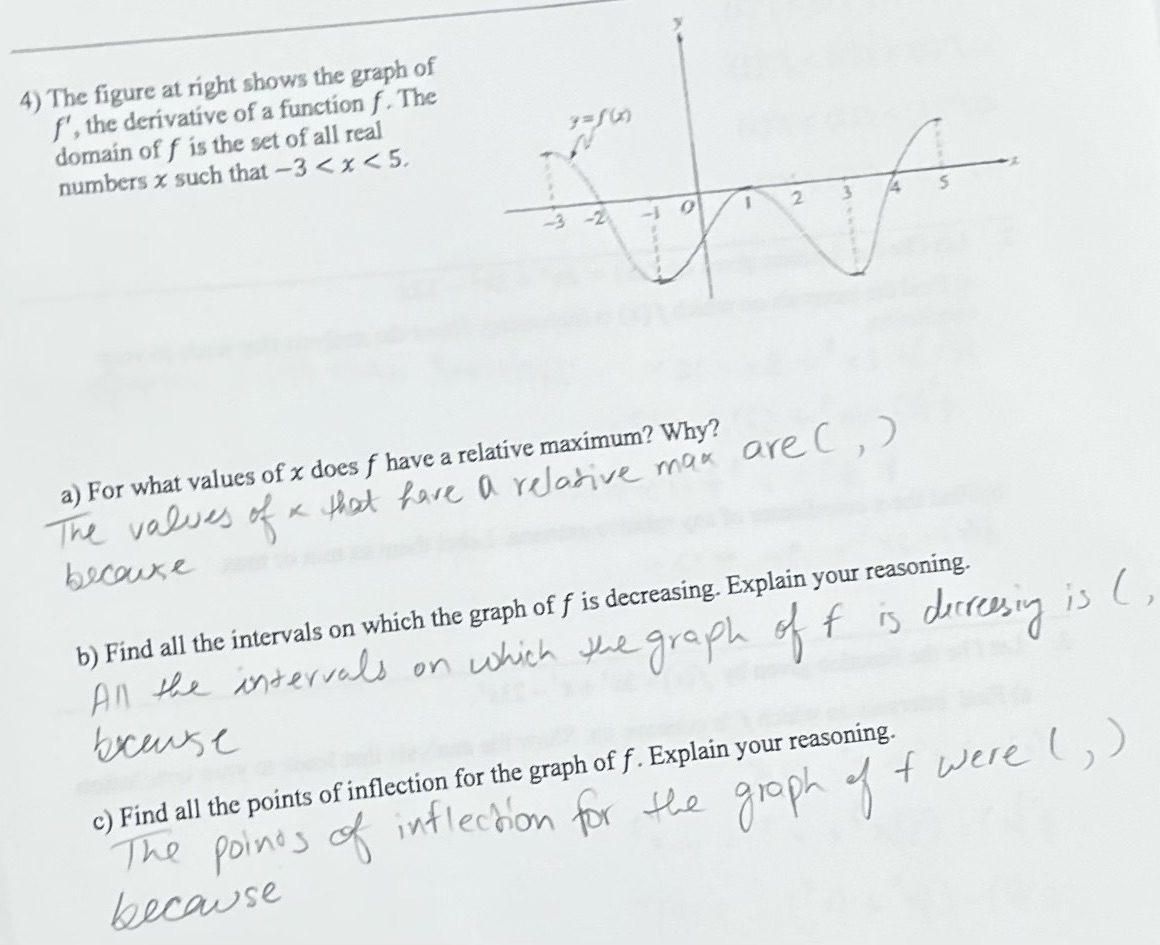 4) The figure at right shows the graph of
f', the derivative of a function f. The
domain of f is the set of all real
numbers x such that −3 < x < 5.
y
y=f(x)
x
-3 -2 -1 0 1 2 3 4 5
a) For what values of x does f have a relative maximum? Why?
The values of x that have a relative max are ( , )
because
b) Find all the intervals on which the graph of f is decreasing. Explain your reasoning.
All the intervals on which the graph of f is decreasing is ( ,
because
c) Find all the points of inflection for the graph of f. Explain your reasoning.
The poinds of inflection for the graph of f were ( , )
because